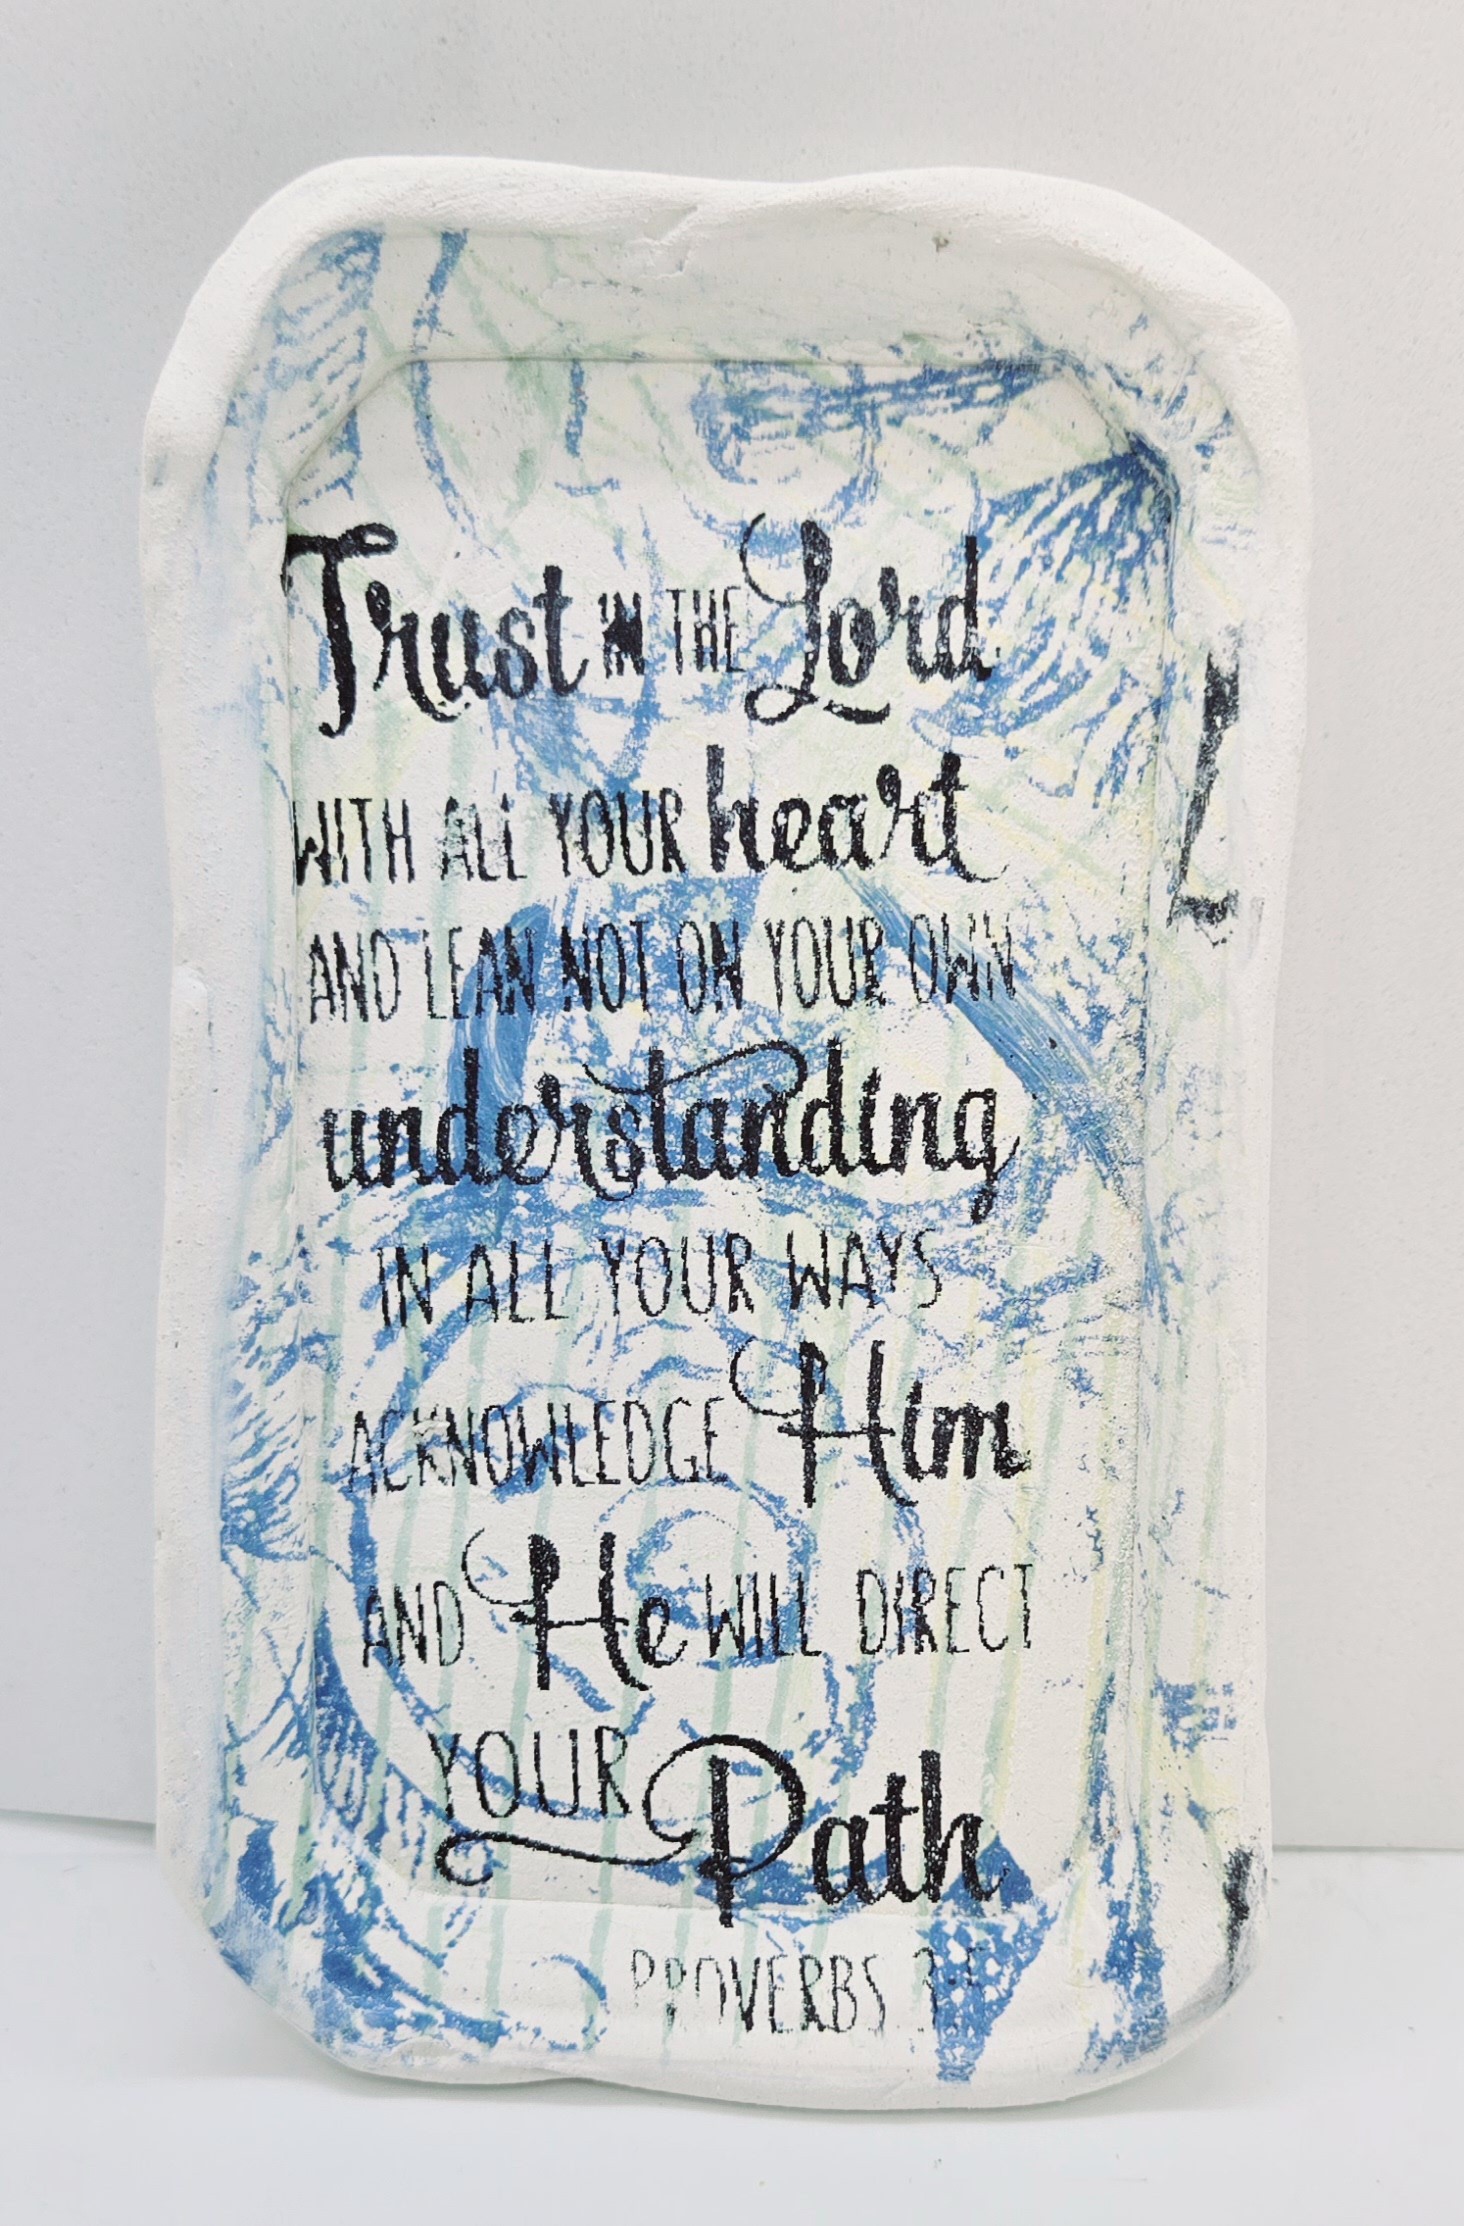 Trust IN THE Lord
WITH ALL YOUR heart
AND LEAN NOT ON YOUR OWN
understanding
IN ALL YOUR WAYS
ACKNOWLEDGE Him
AND He WILL DIRECT
YOUR Path
PROVERBS 3:5